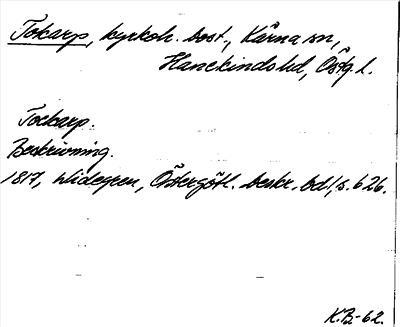 Tokarp, kyrkoh. bost., Kärna sn,
Hanekinds hd, Östg.l.
Tockarp.
Beskrivning.
1817, Widegren, Östergötl. beskr. bd 1, s. 626.
K.B-62.